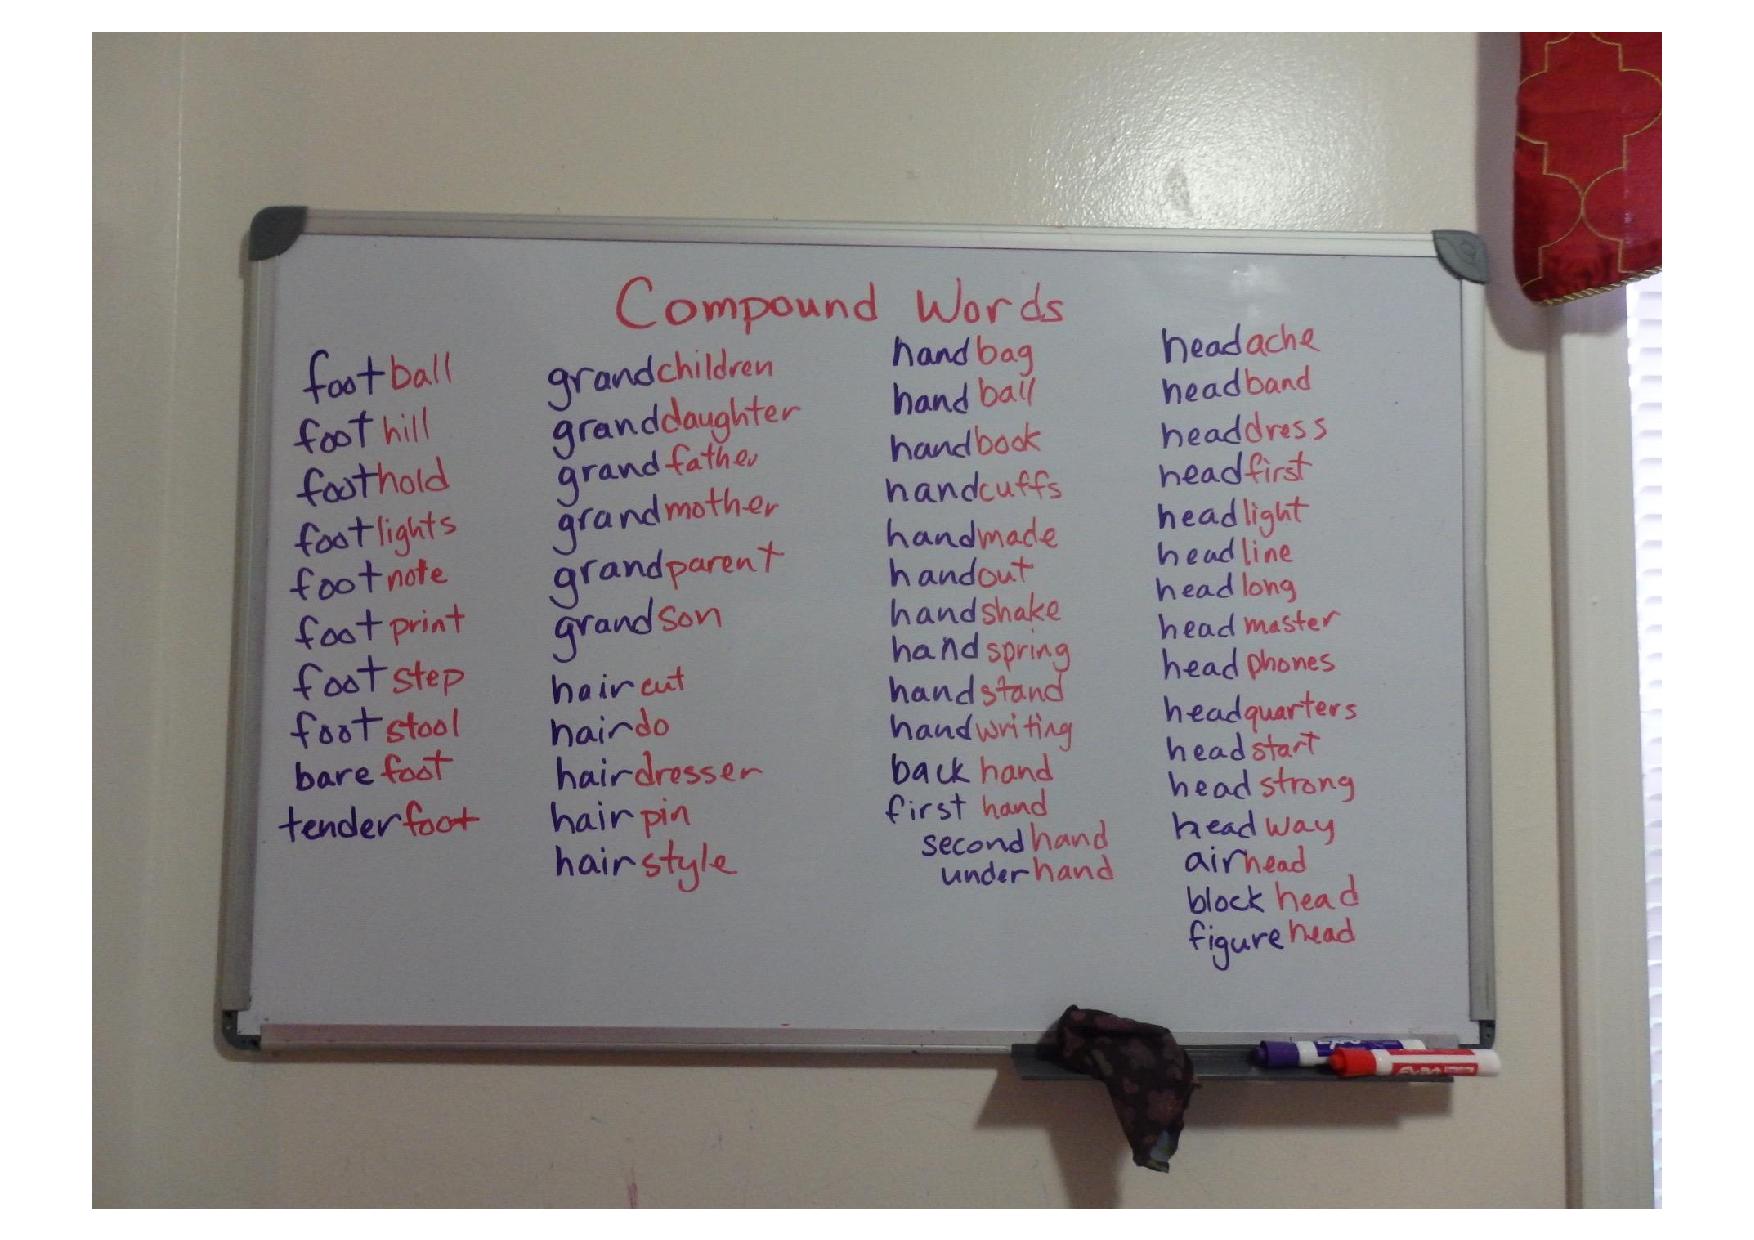 Compound Words
football
foothill
foothold
footlights
footnote
footprint
footstep
footstool
barefoot
tenderfoot
grandchildren
granddaughter
grandfather
grandmother
grandparent
grandson
haircut
hairdo
hairdresser
hairpin
hairstyle
handbag
handball
handbook
handcuffs
handmade
handout
handshake
handspring
handstand
handwriting
backhand
firsthand
secondhand
underhand
headache
headband
headdress
headfirst
headlight
headline
headlong
headmaster
headphones
headquarters
headstart
headstrong
headway
airhead
blockhead
figurehead
EXPO